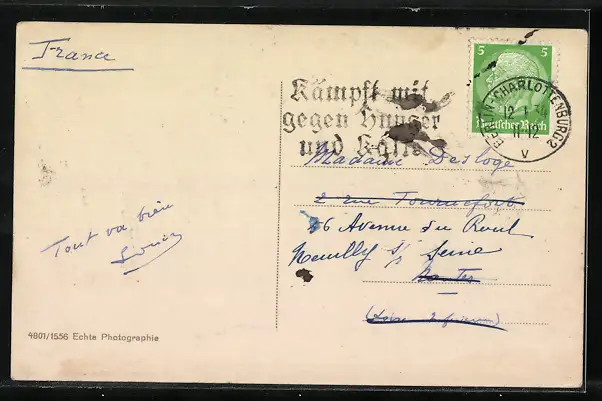 France
5 5
Deutsches Reich
BERLIN-CHARLOTTENBURG 2
12.1.
11-12
V
Kämpft mit
gegen Hunger
und Kälte
Madame Desloge
2 rue Tournefort
56 Avenue du Roul
Neuilly s/ Seine
Nantes
(Loire Inférieure)
Tout va bien
4801/1556 Echte Photographie